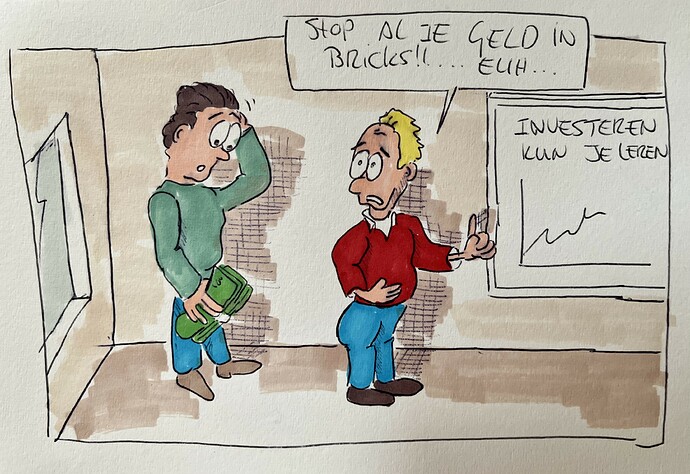 STOP AL JE GELD IN
BRICKS!!.... EUH...
INVESTEREN
KUN JE LEREN